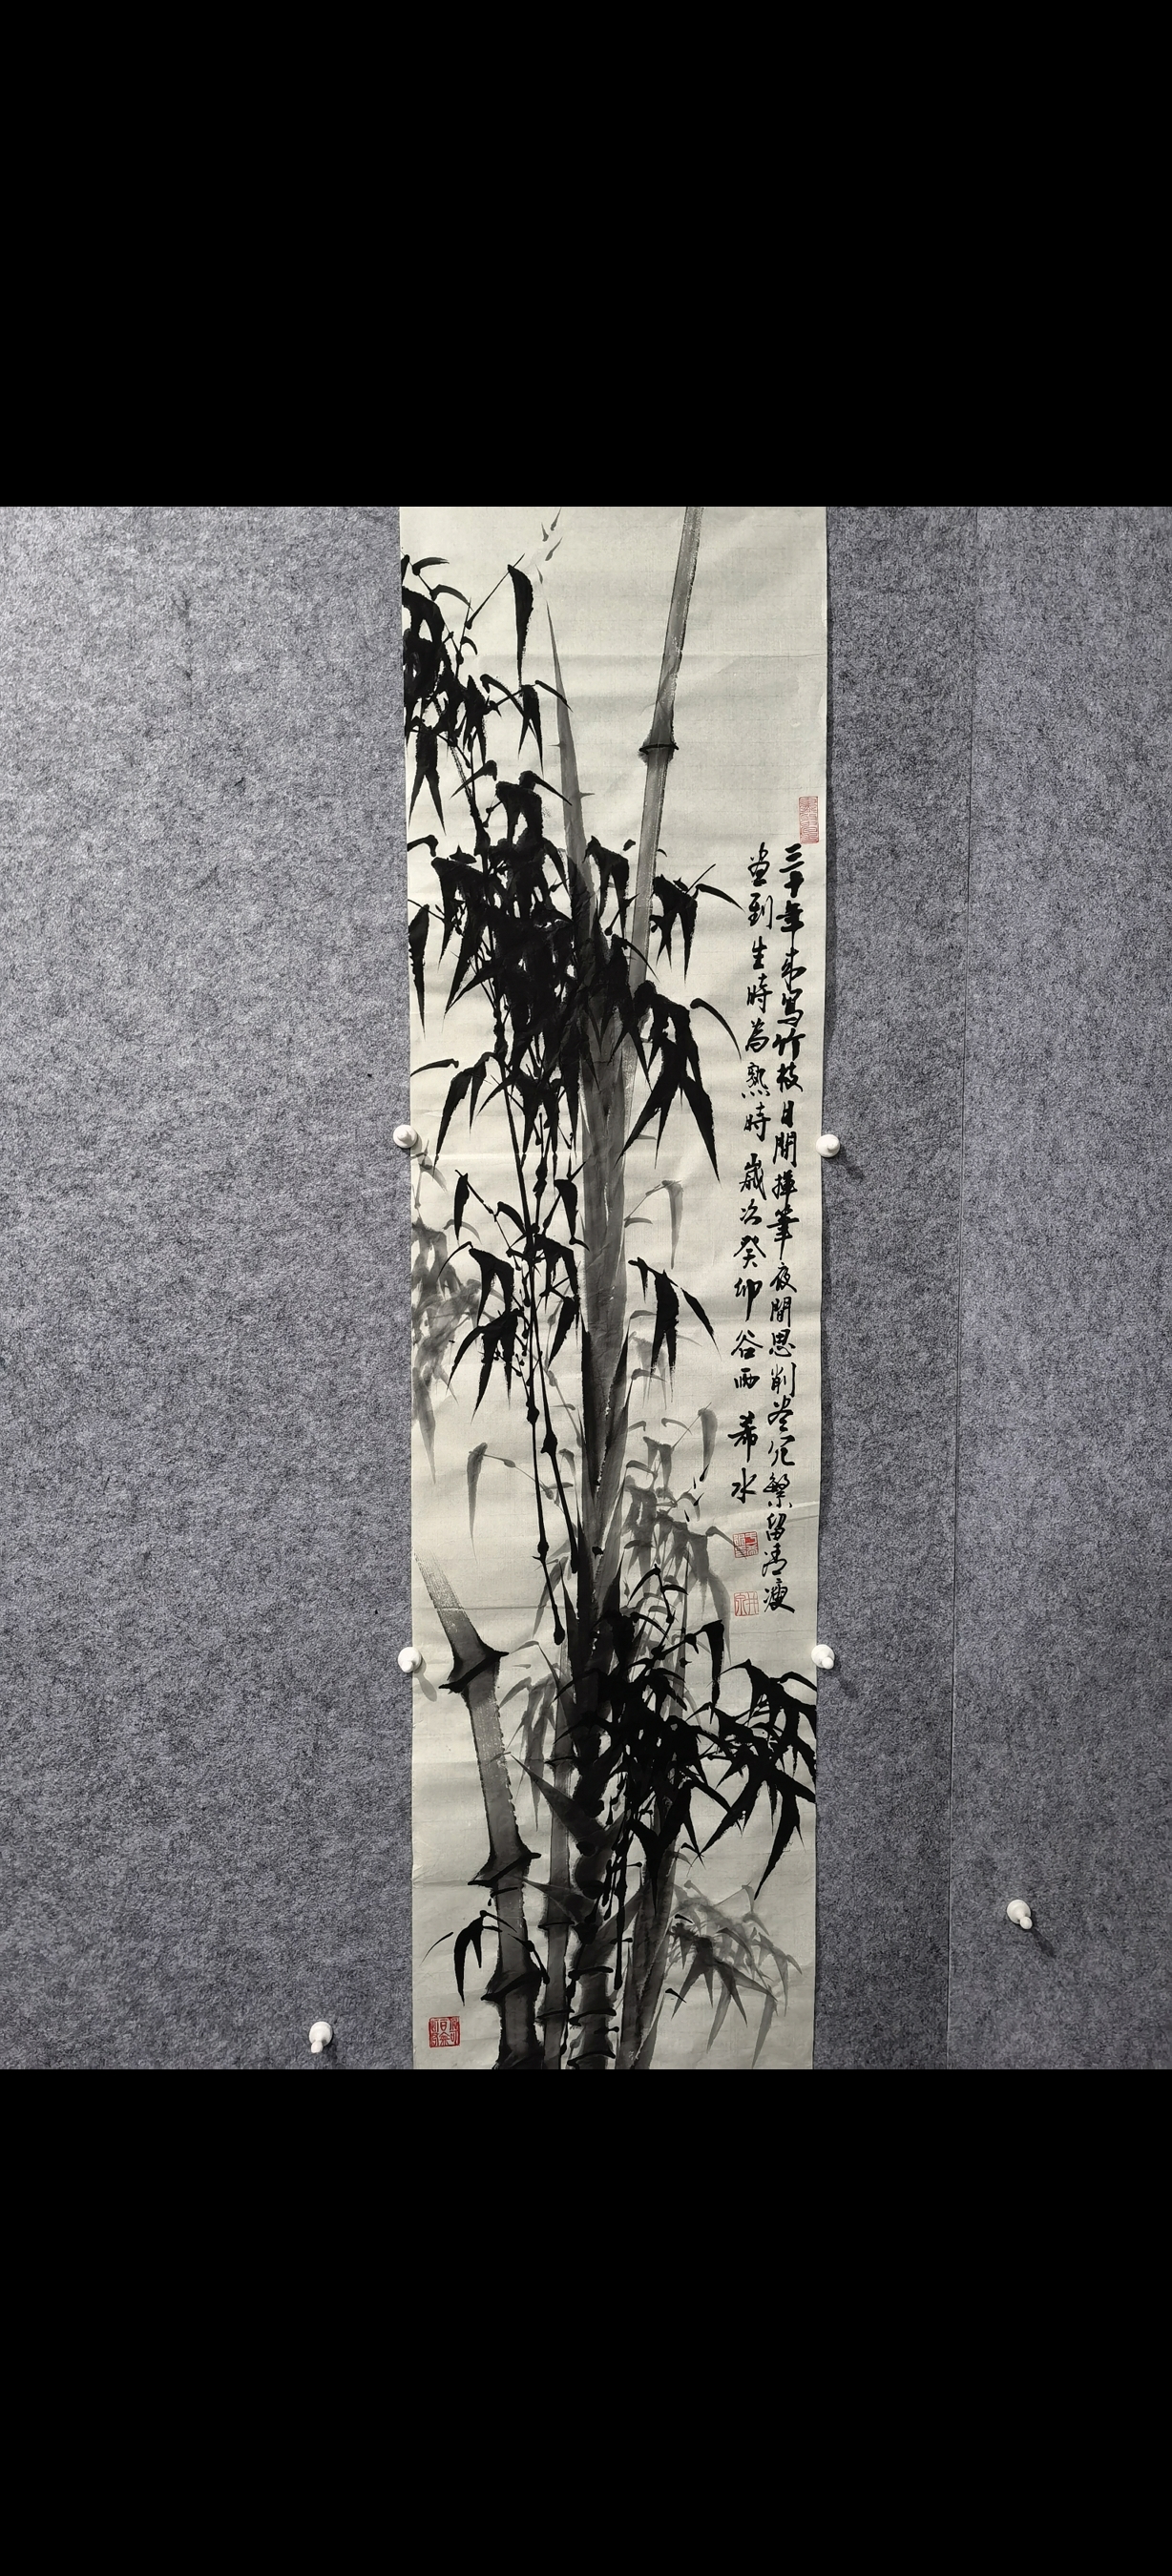 三十年来寫竹枝日間揮筆夜間思削盡冗繁留清瘦
畫到生時為熟時 歲次癸卯谷雨 希水